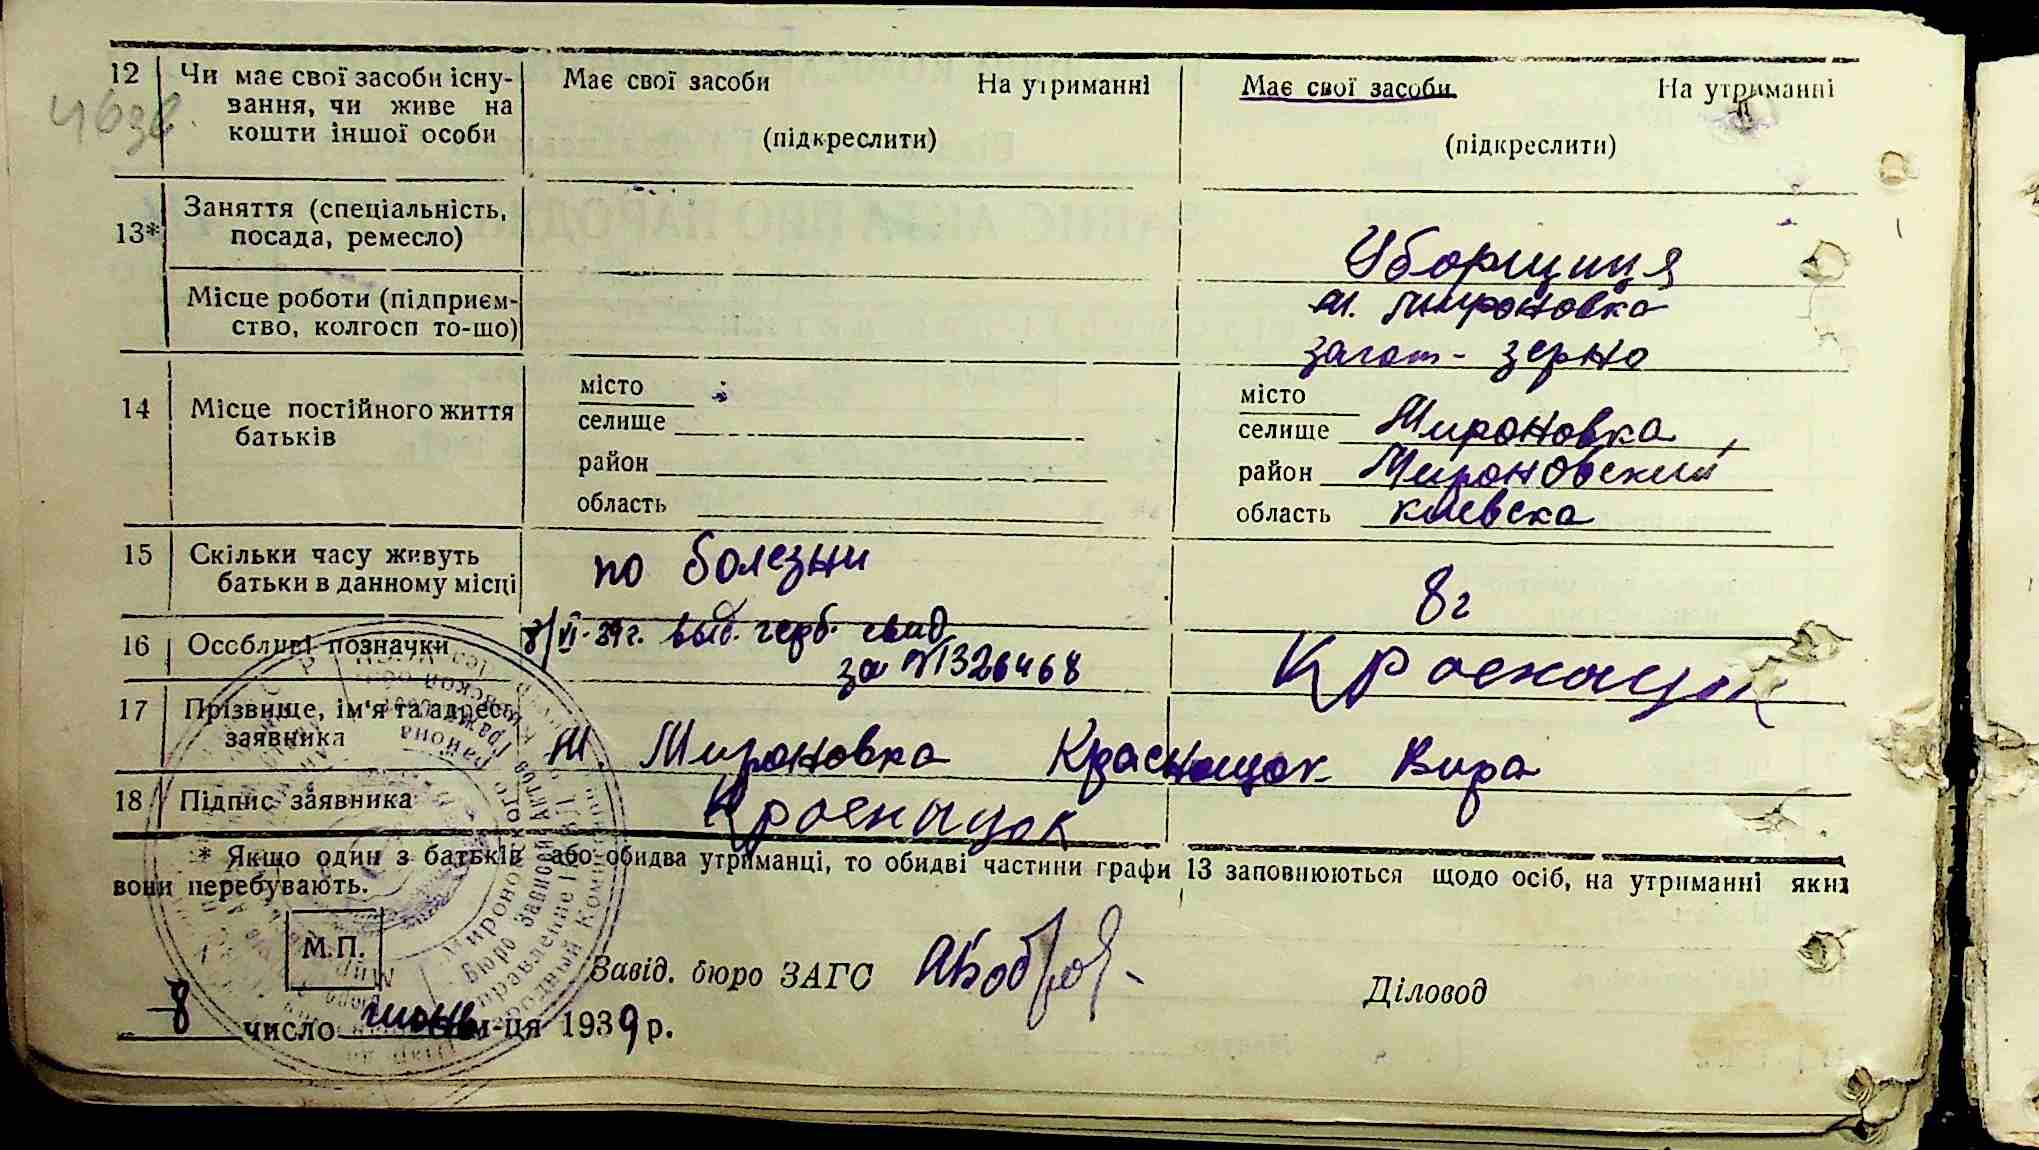 12 Чи має свої засоби існу- Має свої засоби На утриманні Має свої засоби На утриманні
вання, чи живе на
кошти іншої особи (підкреслити) (підкреслити)
13* Заняття (спеціальність,
посада, ремесло) Уборщиця
Місце роботи (підприєм- м. Мироновка
ство, колгосп то-що) загот-зерно
14 Місце постійного життя місто місто
батьків селище селище Мироновка
район район Мироновский
область область киевска
15 Скільки часу живуть по болезни 8 г
батьки в данному місці
16 Особливі позначки 8/VI-39 г. выд. герб. свид Краснащок
за №1326468
17 Прізвище, ім'я та адреса М Мироновка Краснощок Вира
заявника
18 Підпис заявника Краснащок
* Якщо один з батьків або обидва утриманці, то обидві частини графи 13 заповнюються щодо осіб, на утриманні яких
вони перебувають.
М.П.
Завід. бюро ЗАГС Діловод
8 число июнь м-ця 1939 р.